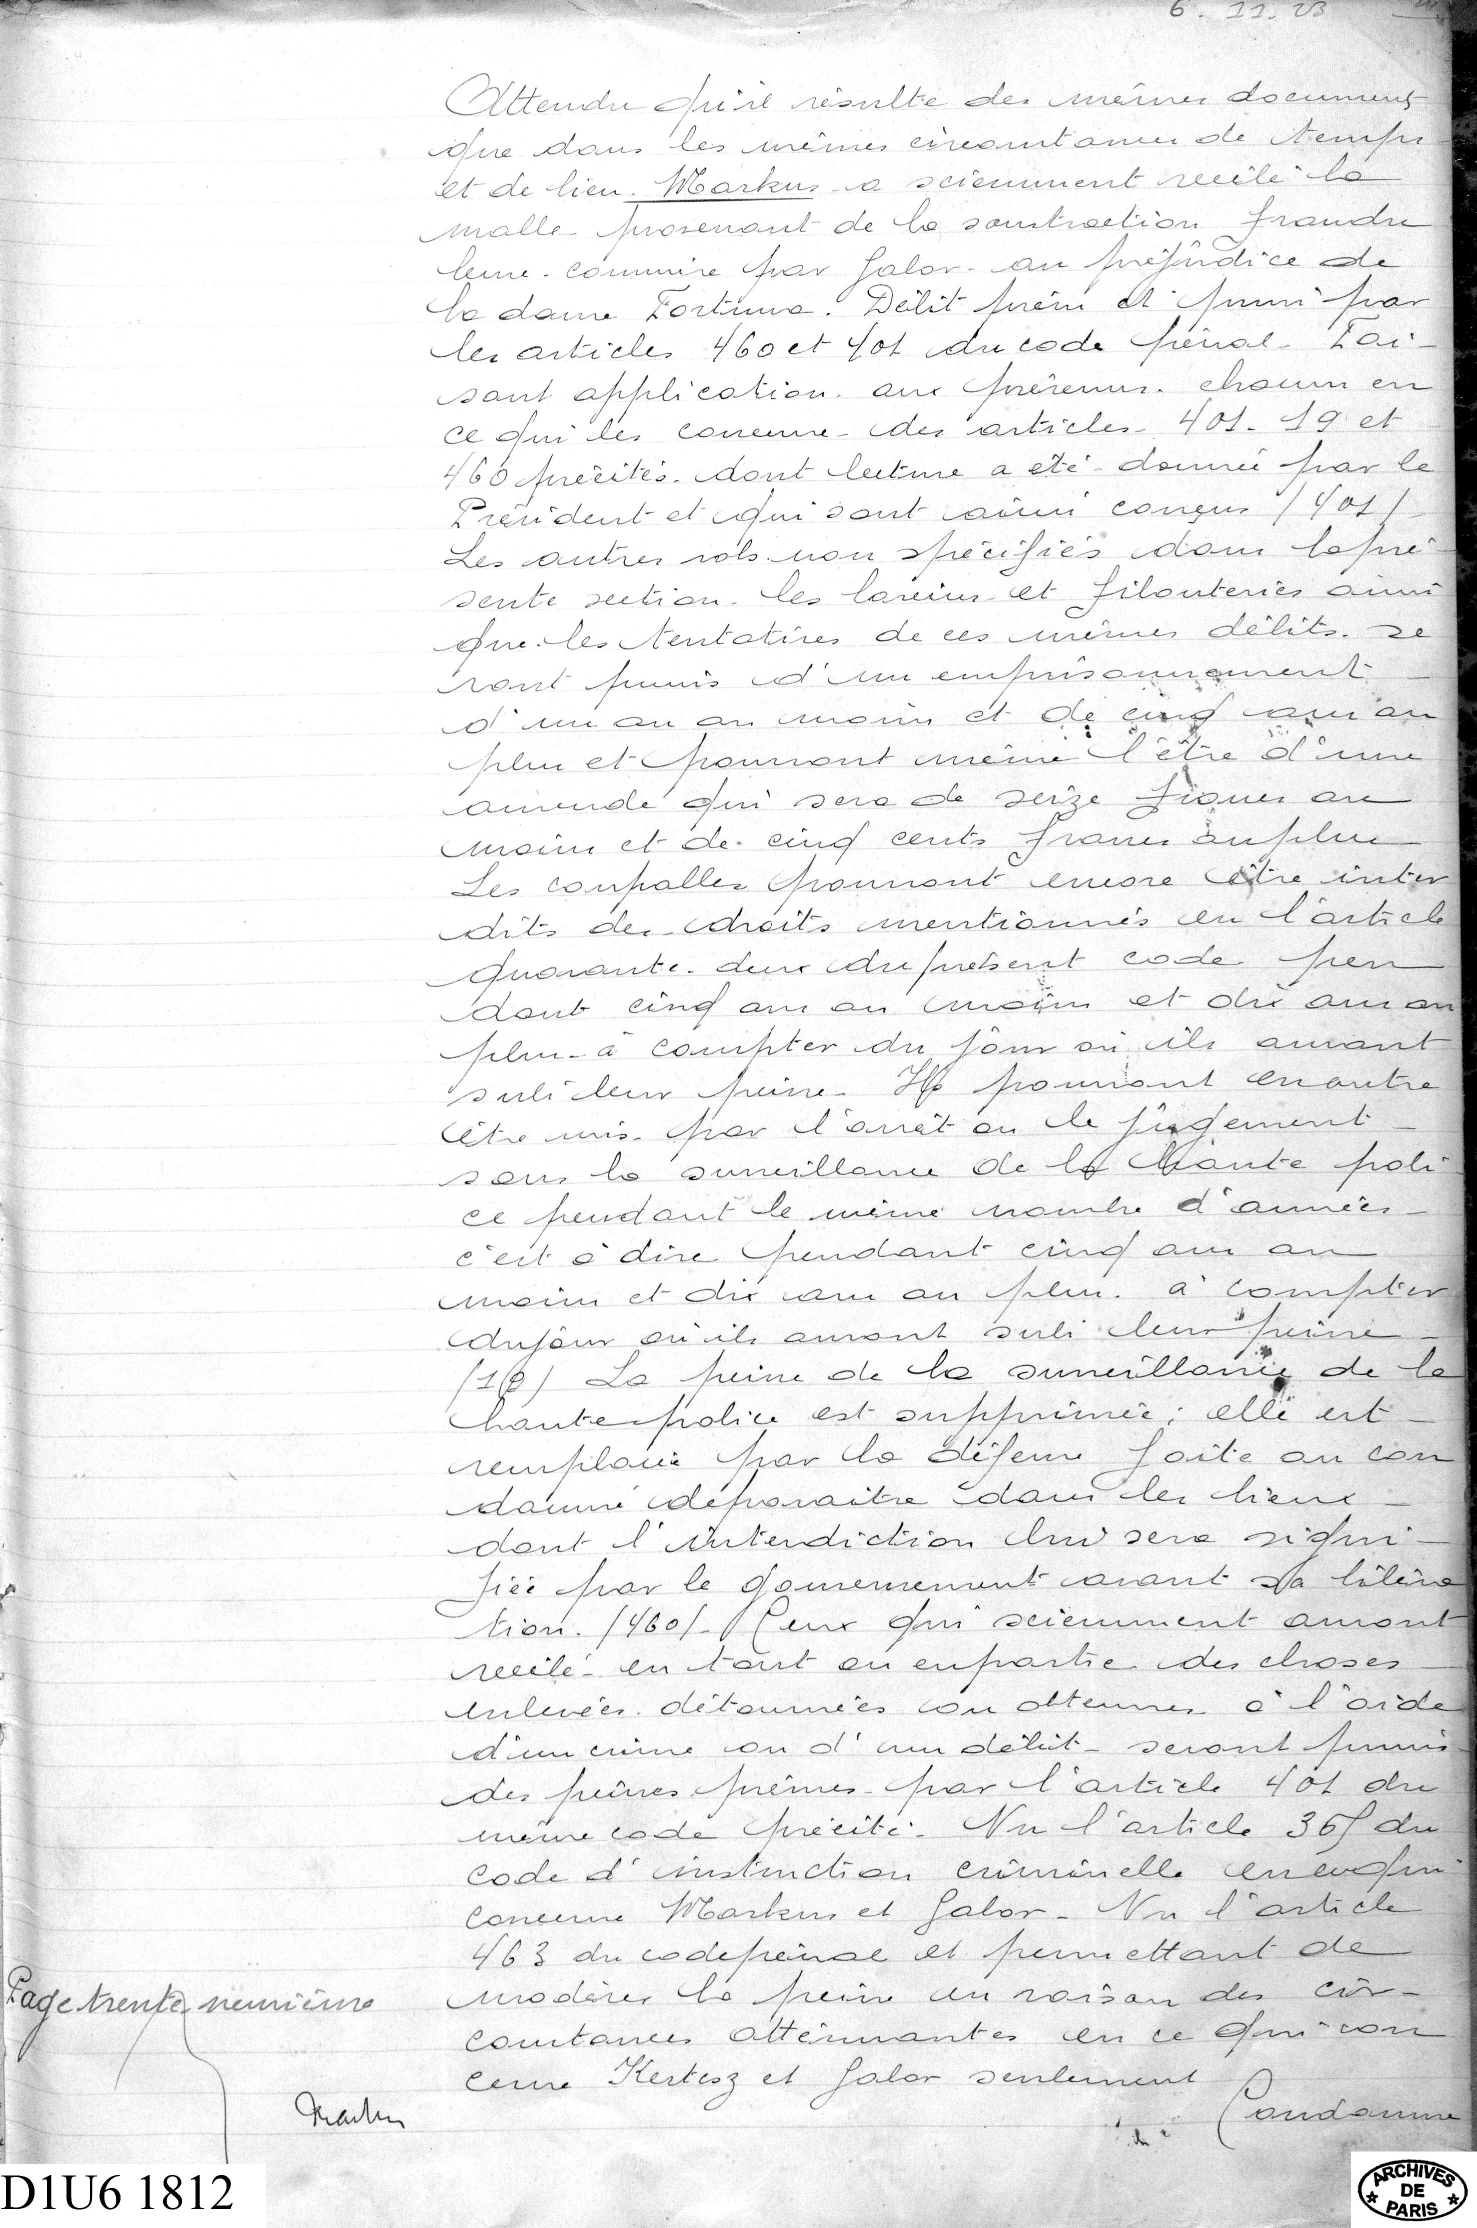 6.11.23
Attendu qu'il résulte des mêmes documents
que dans les mêmes circonstances de temps
et de lieu. Markus a sciemment recélé la
malle provenant de la soustraction faudu
leuse commise par Galor au préjudice de
la dame Fortuna. Délit prévu et puni par
les articles 460 et 401 du code pénal. Fai-
sant application aux prévenus. chacun en
ce qui les concerne des articles 401. 19 et
460 précités. dont lecture a été donnée par le
Président et qui sont ainsi conçus /401/
Les autres vols non spécifiés dans la pré-
sente section. les larcins et filouteries ainsi
que les tentatives de ces mêmes délits. se
ront punis d'un emprisonnement
d'un an au moins et de cinq ans au
plus et pourront même l'être d'une
amende qui sera de seize francs au
moins et de cinq cents francs au plus
Les coupables pourront encore être inter
dits des droits mentionnés en l'article
quarante-deux du présent code pen
dant cinq ans au moins et dix ans au
plus à compter du jour où ils auront
subi leur peine. Ils pourront en outre
être mis par l'arrêt ou le jugement
sous la surveillance de la haute poli-
ce pendant le même nombre d'années
c'est à dire pendant cinq ans au
moins et dix ans au plus. à compter
du jour où ils auront subi leur peine
/19/ La peine de la surveillance de la
haute police est supprimée; elle est
remplacée par la défense faite au con
damné de paraitre dans les lieux
dont l'interdiction lui sera signi-
fiée par le gouvernement avant sa libéra
tion. /460/. Ceux qui sciemment auront
recélé en tout ou en partie des choses
enlevées. détournées ou obtenues à l'aide
d'un crime ou d'un délit seront punis
des peines prévues par l'article 401 du
même code précité. Vu l'article 365 du
code d'instruction criminelle en ce qui
concerne Markus et Galor. Vu l'article
463 du code pénal et permettant de
modérer la peine en raison des cir-
constances atténuantes en ce qui con
cerne Kertesz et Galor seulement
Condamne
Page trente neuvième
Markus
D1U6 1812
ARCHIVES
DE
PARIS